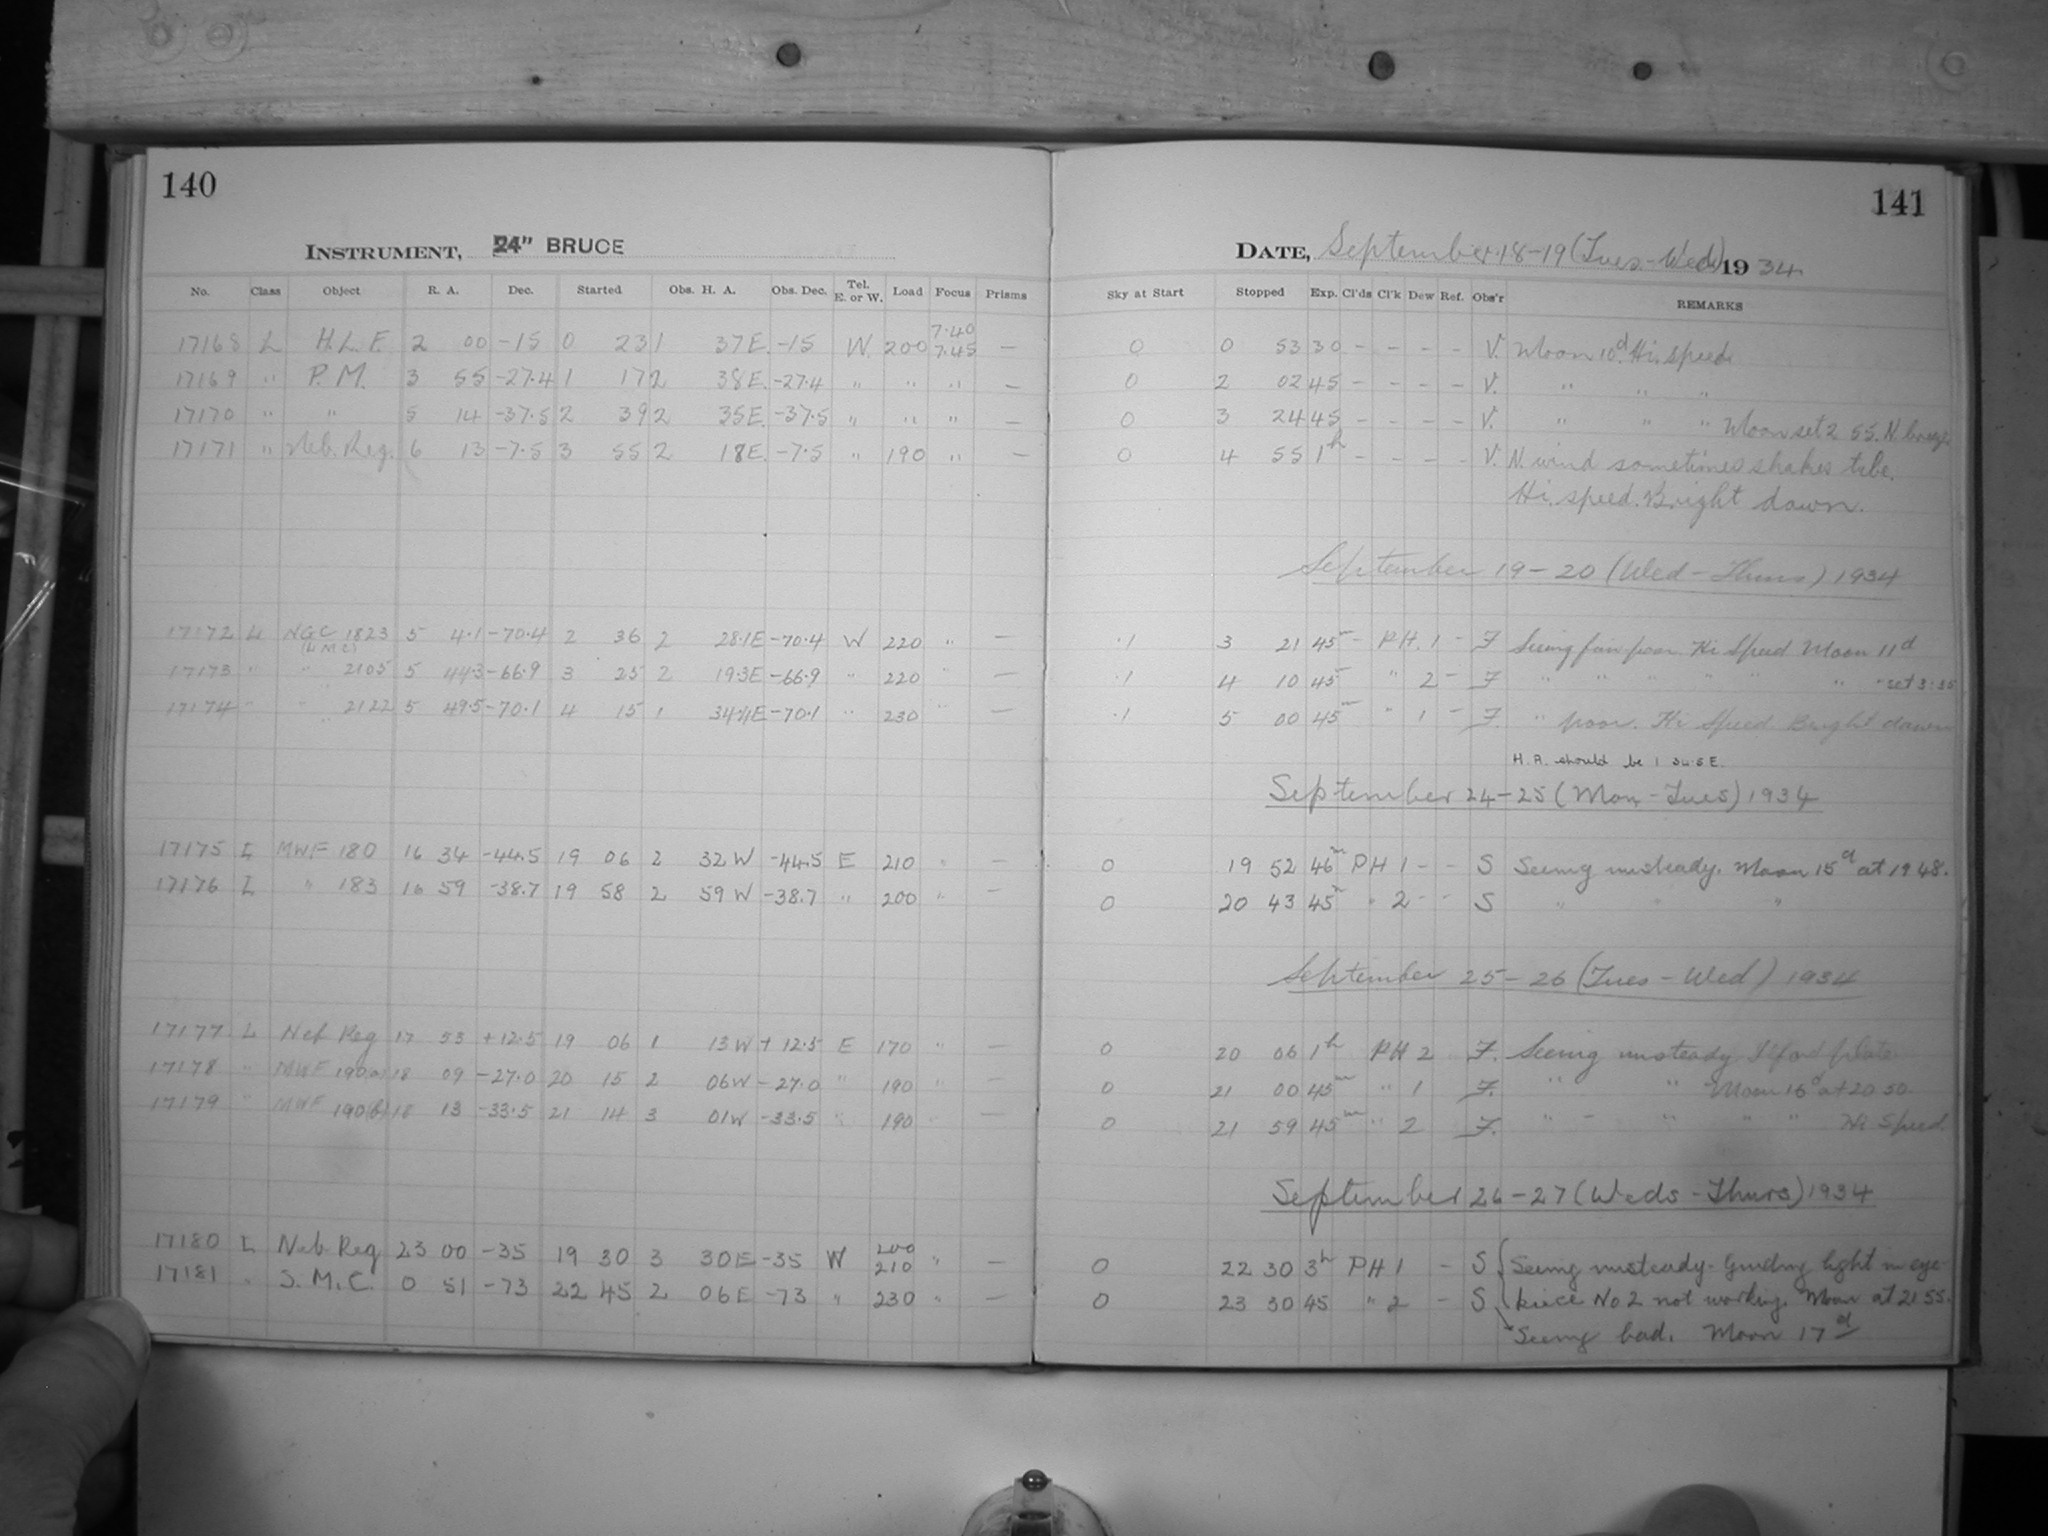 140
141
INSTRUMENT, 24" BRUCE
DATE, September 18-19 (Tues.-Wed.) 1934
No. Class Object R. A. Dec. Started Obs. H. A. Obs. Dec. Tel. E. or W. Load Focus Prisms Sky at Start Stopped Exp. Cl'ds Cl'k Dew Ref. Obs'r REMARKS
17168 L H.L.F. 2 00 -15 0 23 1 37E. -15 W. 200 7.40 7.45 — 0 0 53 30 - - - - V. Moon 10d. Hi. speed
17169 " P.M. 3 55 -27.4 1 17 2 38E. -27.4 " " " — 0 2 02 45 - - - - V. " " "
17170 " " 5 14 -37.5 2 39 2 35E. -37.5 " " " — 0 3 24 45 - - - - V. " " " Moon set 2 55. N
17171 " Neb. Reg. 6 13 -7.5 3 55 2 18E. -7.5 " 190 " — 0 4 55 1h - - - - V. N. wind sometimes shakes tube.
Hi. speed. Bright dawn.
September 19-20 (Wed-Thurs) 1934
17172 L NGC 1823 5 4.1 -70.4 2 36 2 28.1E -70.4 W 220 " — .1 3 21 45m - PH. 1 - F Seeing fair poor. Hi Speed Moon 11d
(LMC)
17173 " " 2105 5 44.3 -66.9 3 25 2 19.3E -66.9 " 220 " — .1 4 10 45m " 2 - F " " " " " " " set 3:35
17174 " " 2122 5 49.5 -70.1 4 15 1 E -70.1 " 230 " — .1 5 00 45m " 1 - F. " poor. Hi Speed Bright dawn
H.A. should be 1 34.5 E.
September 24-25 (Mon-Tues) 1934
17175 L MWF 180 16 34 -44.5 19 06 2 32W -44.5 E 210 " — 0 19 52 46m PH 1 - - S Seeing unsteady. Moon 15d at 19 48.
17176 L " 183 16 59 -38.7 19 58 2 59W -38.7 " 200 " — 0 20 43 45m " 2 - - S " " "
September 25-26 (Tues-Wed) 1934
17177 L Neb Reg 17 53 +12.5 19 06 1 13W +12.5 E 170 " — 0 20 06 1h PH 2 F. Seeing unsteady Ilford plate
17178 " MWF 190(a) 18 09 -27.0 20 15 2 06W -27.0 " 190 " — 0 21 00 45m " 1 F. " " Moon 16d at 20 50
17179 " MWF 190(b) 18 13 -33.5 21 14 3 01W -33.5 " 190 " — 0 21 59 45m " 2 F. " - " " " Hi Speed.
September 26-27 (Weds-Thurs) 1934
17180 L Neb Reg 23 00 -35 19 30 3 30E -35 W 200 210 " — 0 22 30 3h PH 1 - S Seeing unsteady. Guiding light in eye-
17181 " S.M.C. 0 51 -73 22 45 2 06E -73 " 230 " — 0 23 30 45 " 2 - S piece No 2 not working. Moon at 21 55.
Seeing bad. Moon 17d